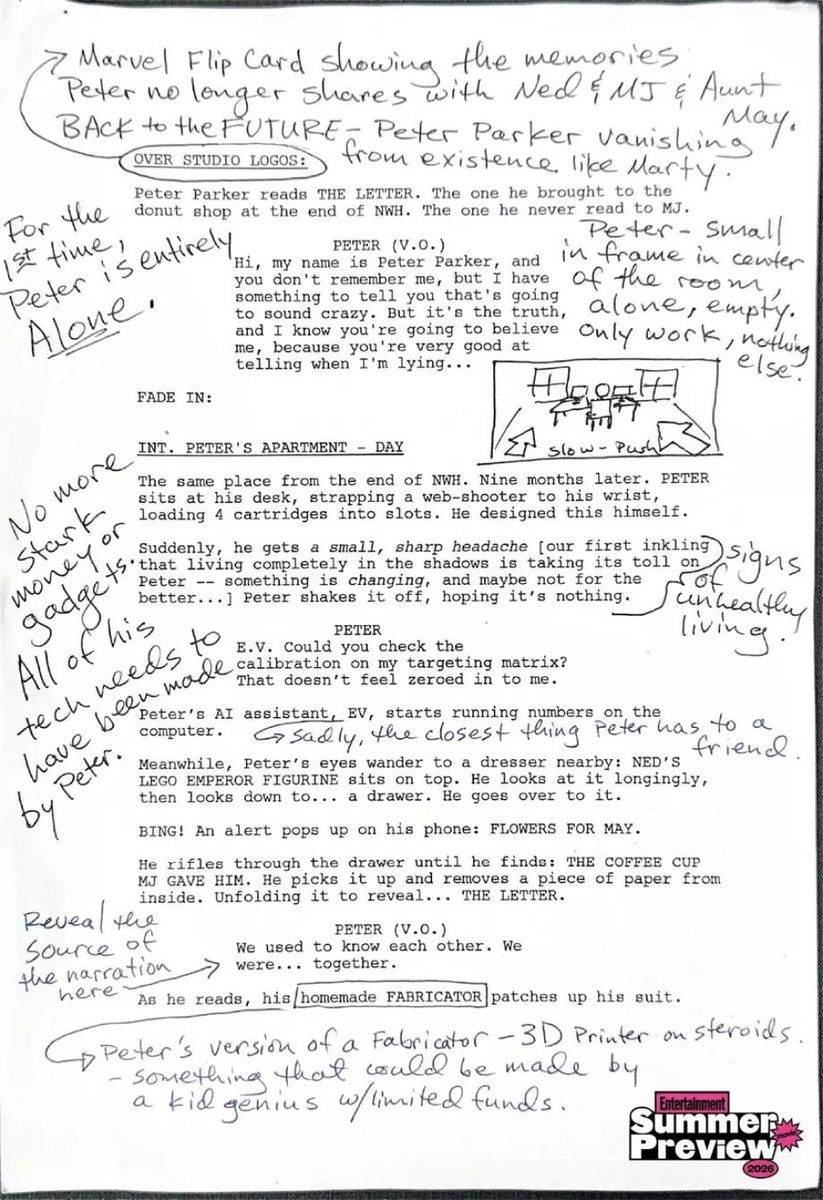 Marvel Flip Card showing the memories
Peter no longer shares with Ned & MJ & Aunt May.
BACK to the FUTURE - Peter Parker vanishing
from existence like Marty.
OVER STUDIO LOGOS:
Peter Parker reads THE LETTER. The one he brought to the
donut shop at the end of NWH. The one he never read to MJ.
For the
1st time,
Peter is entirely
Alone.
PETER (V.O.)
Hi, my name is Peter Parker, and
you don't remember me, but I have
something to tell you that's going
to sound crazy. But it's the truth,
and I know you're going to believe
me, because you're very good at
telling when I'm lying...
Peter - small
in frame in center
of the room,
alone, empty.
Only work, nothing
else.
slow-Push
FADE IN:
INT. PETER'S APARTMENT - DAY
The same place from the end of NWH. Nine months later. PETER
sits at his desk, strapping a web-shooter to his wrist,
loading 4 cartridges into slots. He designed this himself.
No more
Stark
money or
gadgets.
All of his
tech needs to
have been made
by Peter.
Suddenly, he gets a small, sharp headache [our first inkling
that living completely in the shadows is taking its toll on
Peter -- something is changing, and maybe not for the
better...] Peter shakes it off, hoping it's nothing.
signs
of
unhealthy
living.
PETER
E.V. Could you check the
calibration on my targeting matrix?
That doesn't feel zeroed in to me.
Peter's AI assistant, EV, starts running numbers on the
computer.
sadly, the closest thing Peter has to a
friend.
Meanwhile, Peter's eyes wander to a dresser nearby: NED'S
LEGO EMPEROR FIGURINE sits on top. He looks at it longingly,
then looks down to... a drawer. He goes over to it.
BING! An alert pops up on his phone: FLOWERS FOR MAY.
He rifles through the drawer until he finds: THE COFFEE CUP
MJ GAVE HIM. He picks it up and removes a piece of paper from
inside. Unfolding it to reveal... THE LETTER.
Reveal the
source of
the narration
here
PETER (V.O.)
We used to know each other. We
were... together.
As he reads, his homemade FABRICATOR patches up his suit.
Peter's version of a Fabricator - 3D Printer on steroids.
- something that could be made by
a kid genius w/limited funds.
Entertainment
Summer
movie
Preview
2026